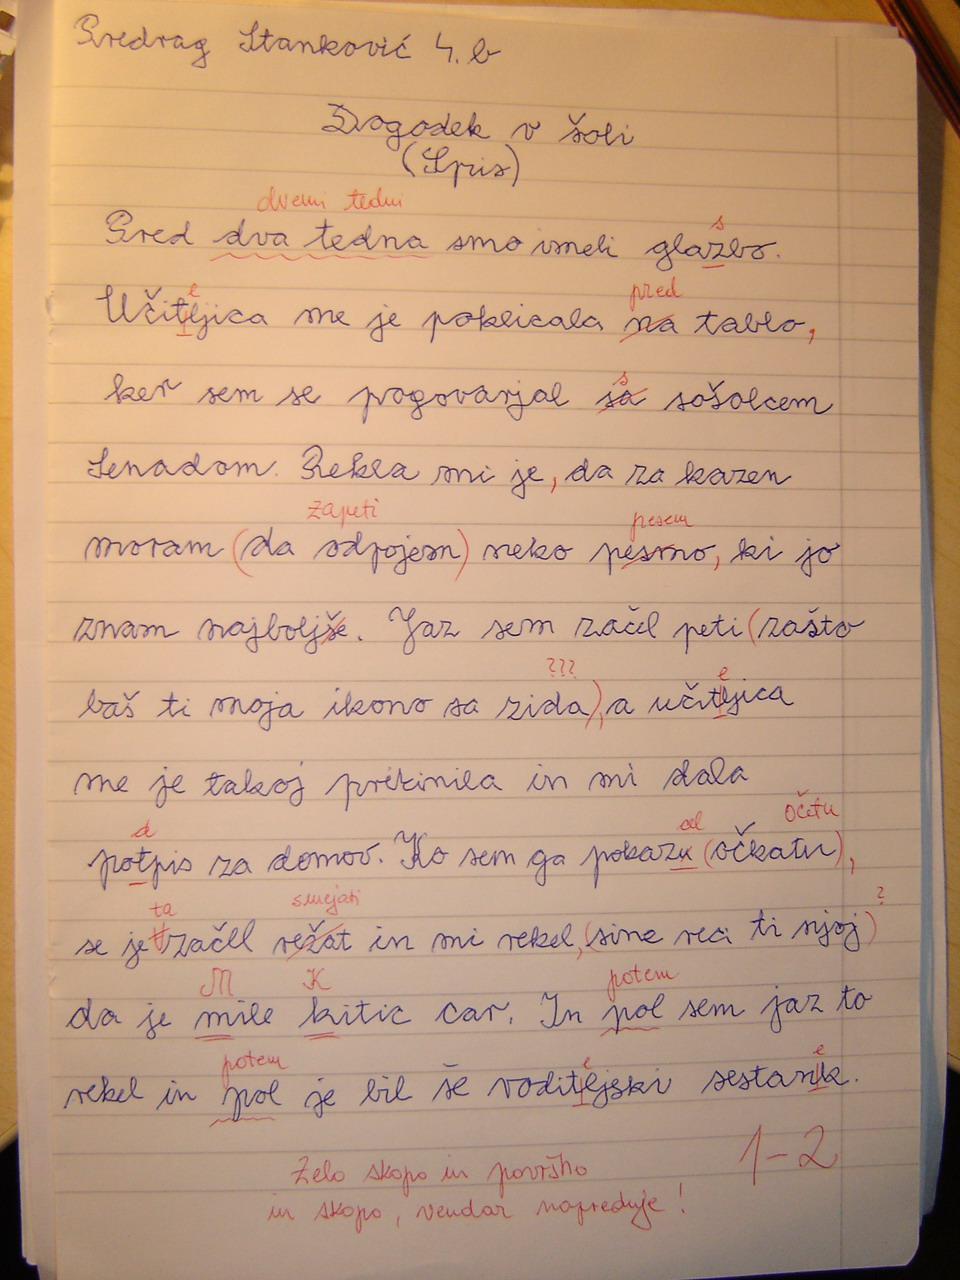 Predrag Stanković 4. b
Dogodek v šoli
(Spis)
dvemi tedni s
Pred dva tedna smo imeli glazbo.
e pred
Učitljica me je poklicala na tablo,
s
ker sem se pogovarjal sa sošolcem
Senadom. Rekla mi je, da za kazen
zapeti pesem
moram (da odpojem) neko pesmo, ki jo
znam najboljše. Jaz sem začel peti (zašto
??? e
baš ti moja ikono sa zida), a učitljica
me je takoj prekinila in mi dala
d al očetu
potpis za domov. Ko sem ga pokazu (očkatu),
ta smejati ?
se je začel režat in mi rekel, (sine reci ti njoj)
M K potem
da je mile kitic car. In pol sem jaz to
potem e e
rekel in pol je bil še voditljski sestank.
1-2
Zelo skopo in površno
in skopo, vendar napreduje!